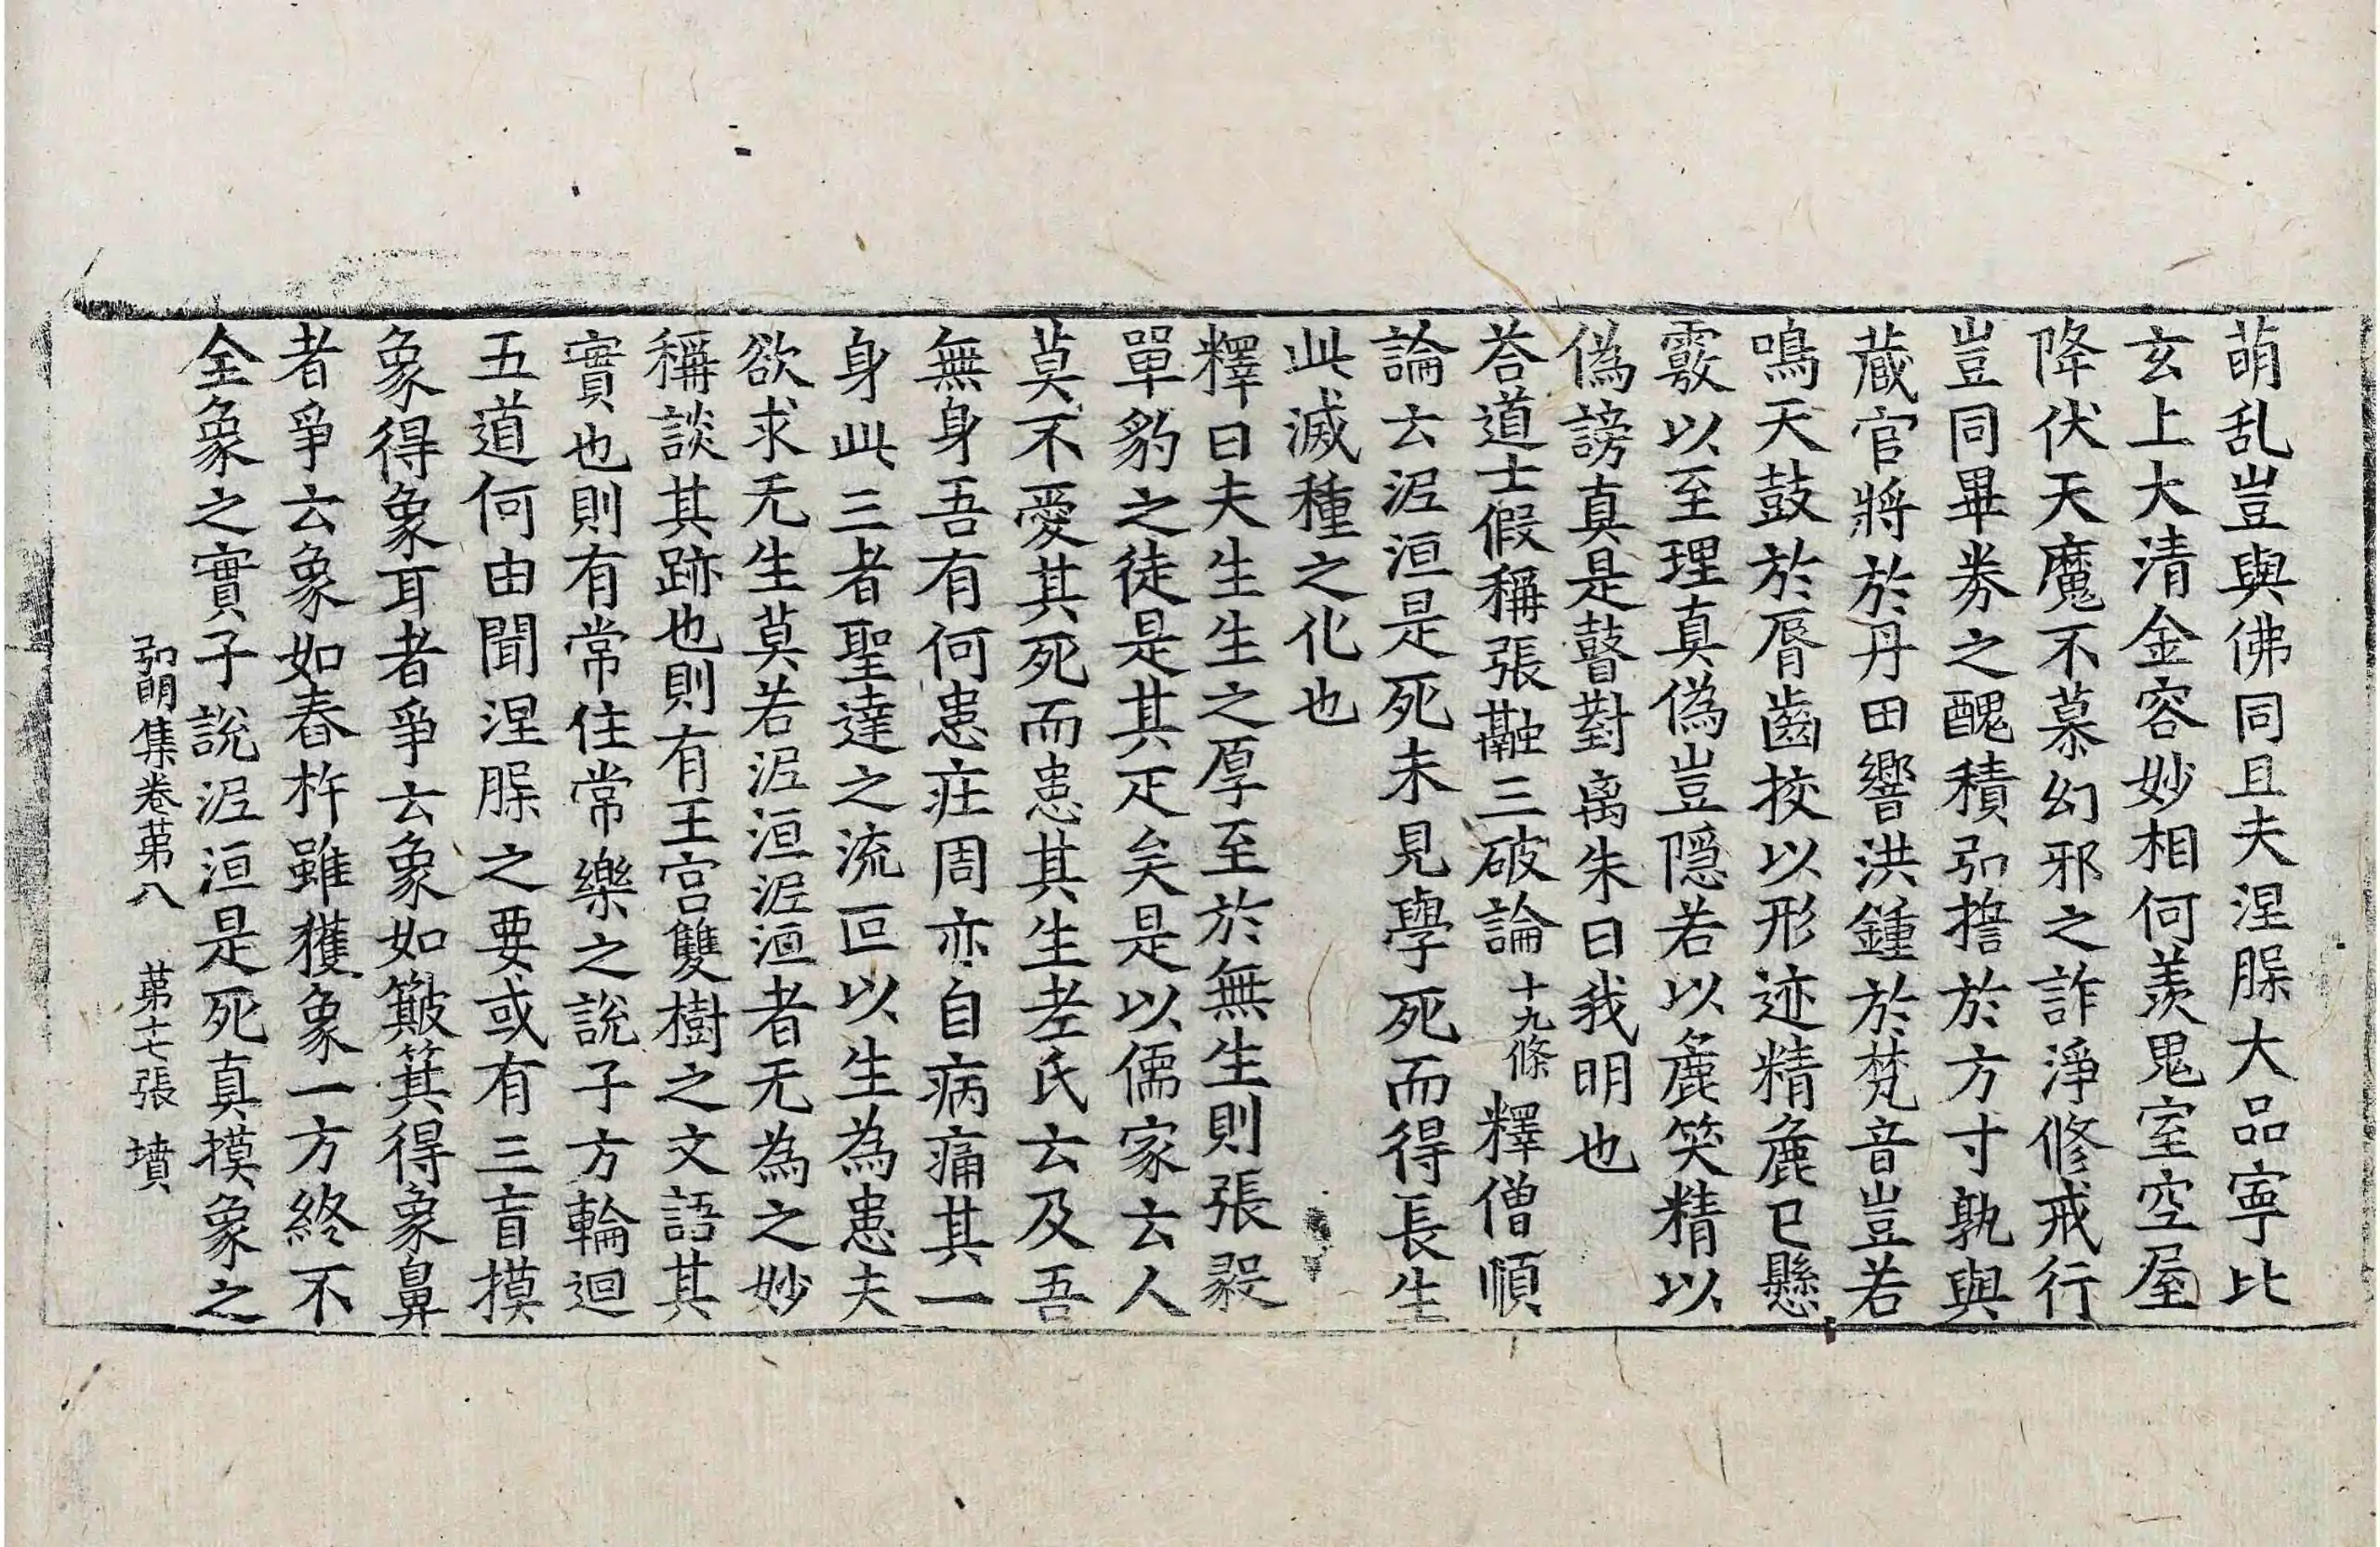 萌乱豈與佛同且夫涅脲大品寧比
玄上大清金容妙相何羡鬼室空屋
降伏天魔不慕幻邪之詐淨修戒行
豈同畢券之醜積弘擔於方寸孰與
蔵官將於丹田響洪鍾於梵音豈若
鳴天鼓於脣齒挍以形迹精麁已懸
覈以至理真偽豈隱若以麁笑精以
偽謗真是瞽對离朱曰我明也
荅道士假稱張融三破論十九條釋僧順
論云泥洹是死未見學死而得長生
此滅種之化也
釋曰夫生生之厚至於無生則張毅
單豹之徒是其疋矣是以儒家云人
莫不愛其死而患其生老氏云及吾
無身吾有何患庄周亦自病痛其一
身此三者聖達之流叵以生為患夫
欲求无生莫若泥洹泥洹者无為之妙
稱談其跡也則有王宫雙樹之文語其
實也則有常住常樂之說子方輪迴
五道何由聞涅脲之要或有三盲摸
象得象耳者爭云象如簸箕得象鼻
者爭云象如舂杵雖獲象一方終不
全象之實子說泥洹是死真摸象之
弘明集卷苐八　苐十七張　墳